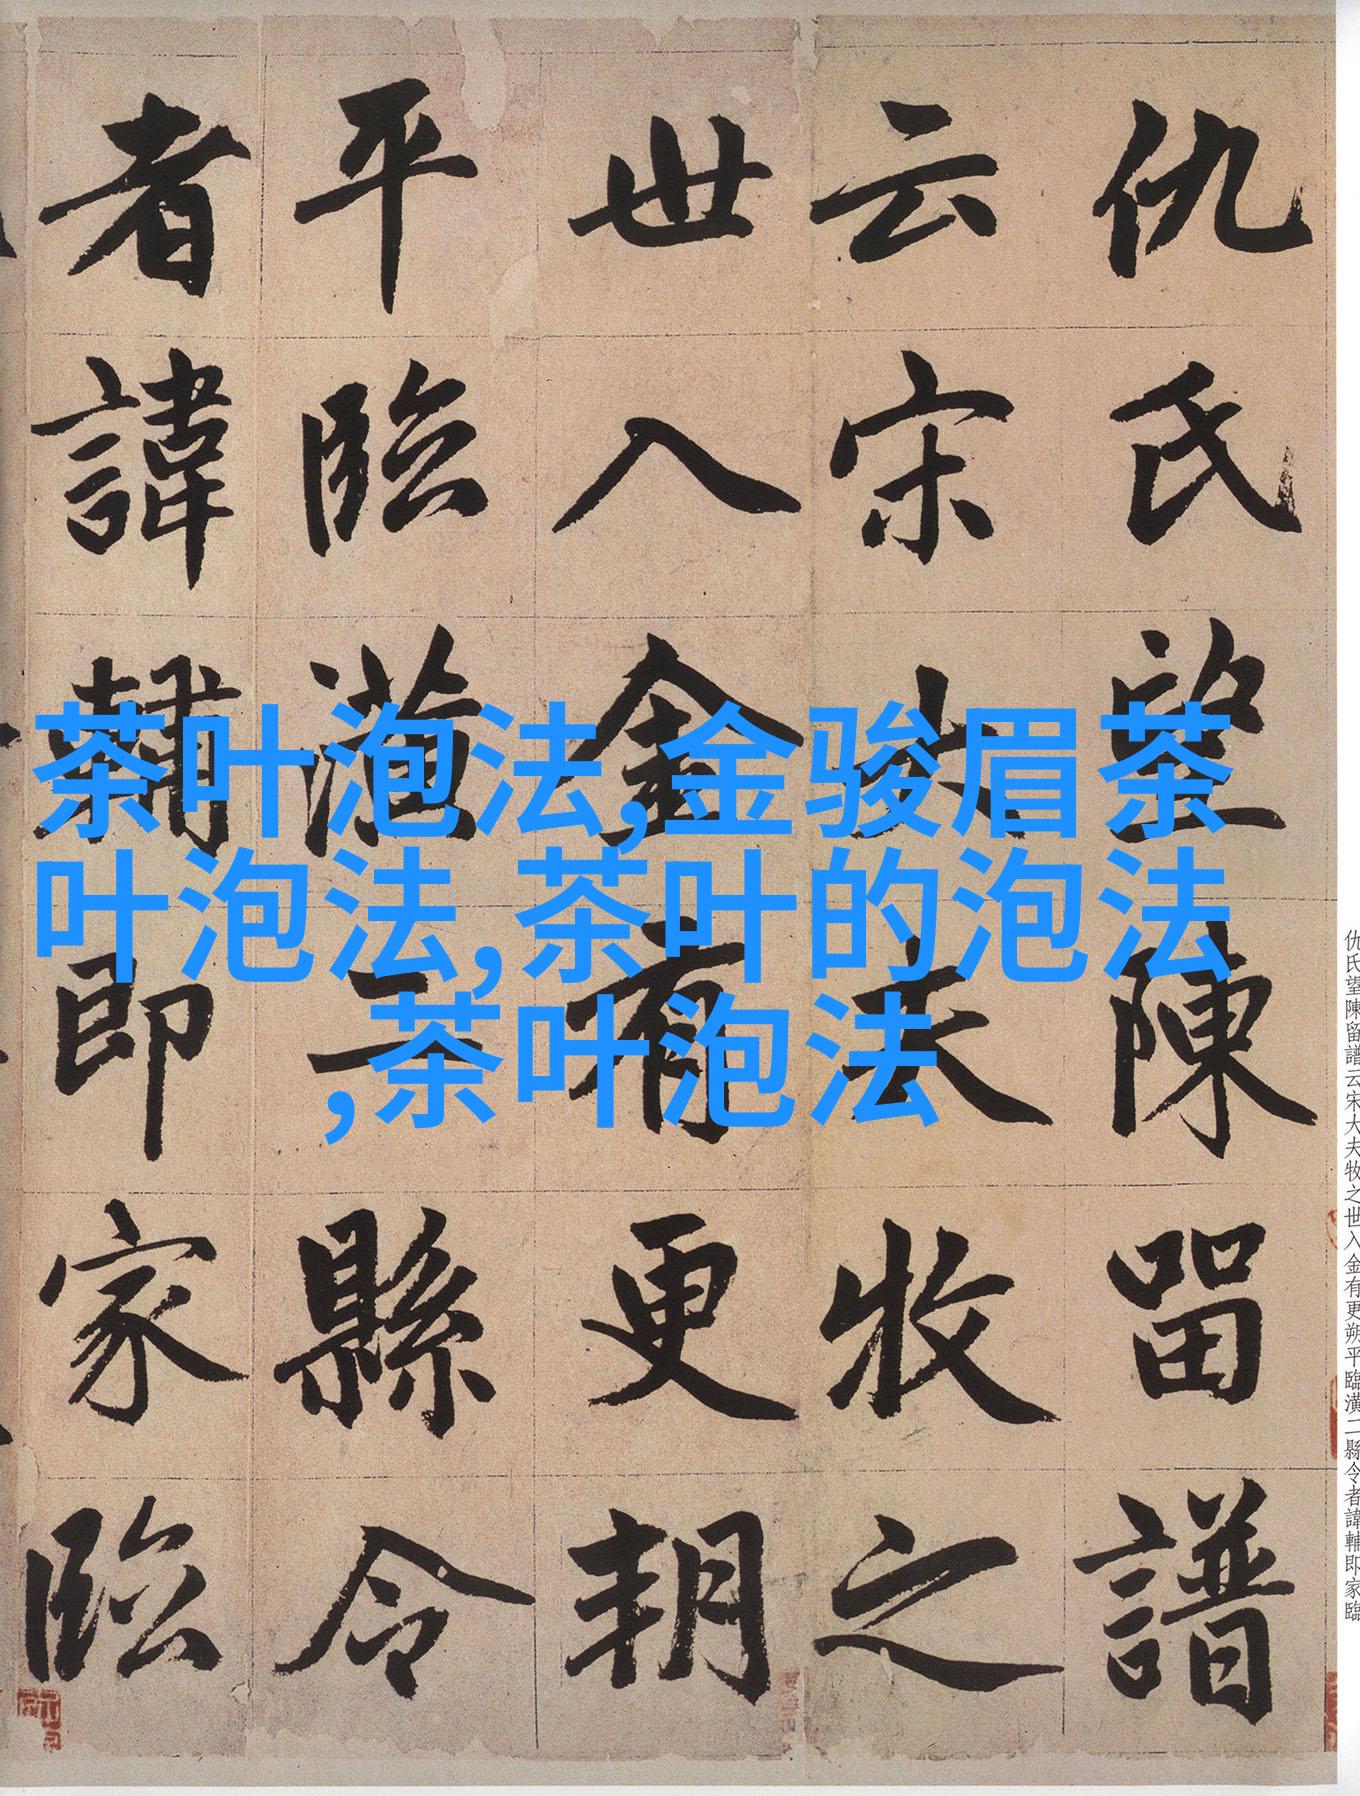 茶叶泡法,金骏眉茶
叶泡法,茶叶的泡法
,茶叶泡法
仇氏望陳留譜
云宋大夫牧之
世入金有更朔
平臨潢二縣令
者諱輔即家臨
仇氏望陳留譜云宋大夫牧之世入金有更朔平臨潢二縣令者諱輔即家臨